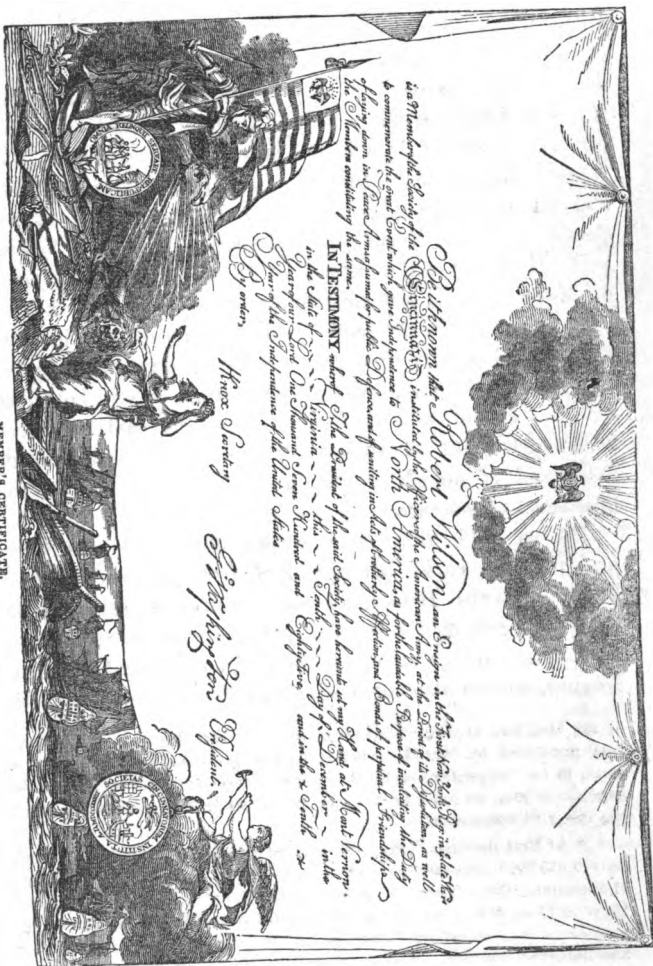 Be it known that Robert Wilson an Ensign in the
is a Member of the Society of the Cincinnati; instituted by the Officers of the American Army, at the Period of its Dissolution, as well
to commemorate the great Event which gave Independence to North America, as for the laudable Purpose of inculcating the Duty
of laying down in Peace Arms assumed for public Defence, and of uniting in Acts of brotherly Affection, and Bonds of perpetual Friendship
the Members constituting the same.
IN TESTIMONY whereof I, the President of the said Society, have hereunto set my Hand at Mount Vernon
in the State of Virginia this Tenth Day of December in the
Year of our Lord One Thousand Seven Hundred and Eighty Five and in the Tenth
Year of the Independence of the United States
By order,
Knox Secretary
G. Washington President
OMNIA RELINQUIT SERVARE REMPUBLICAM
SOCIETAS CINCINNATORUM INSTITUTA
MEMBER'S CERTIFICATE.